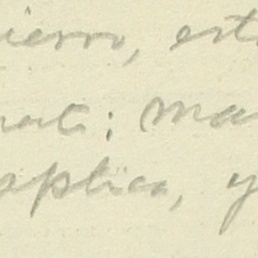 ierro, est
; ma
aplica, y